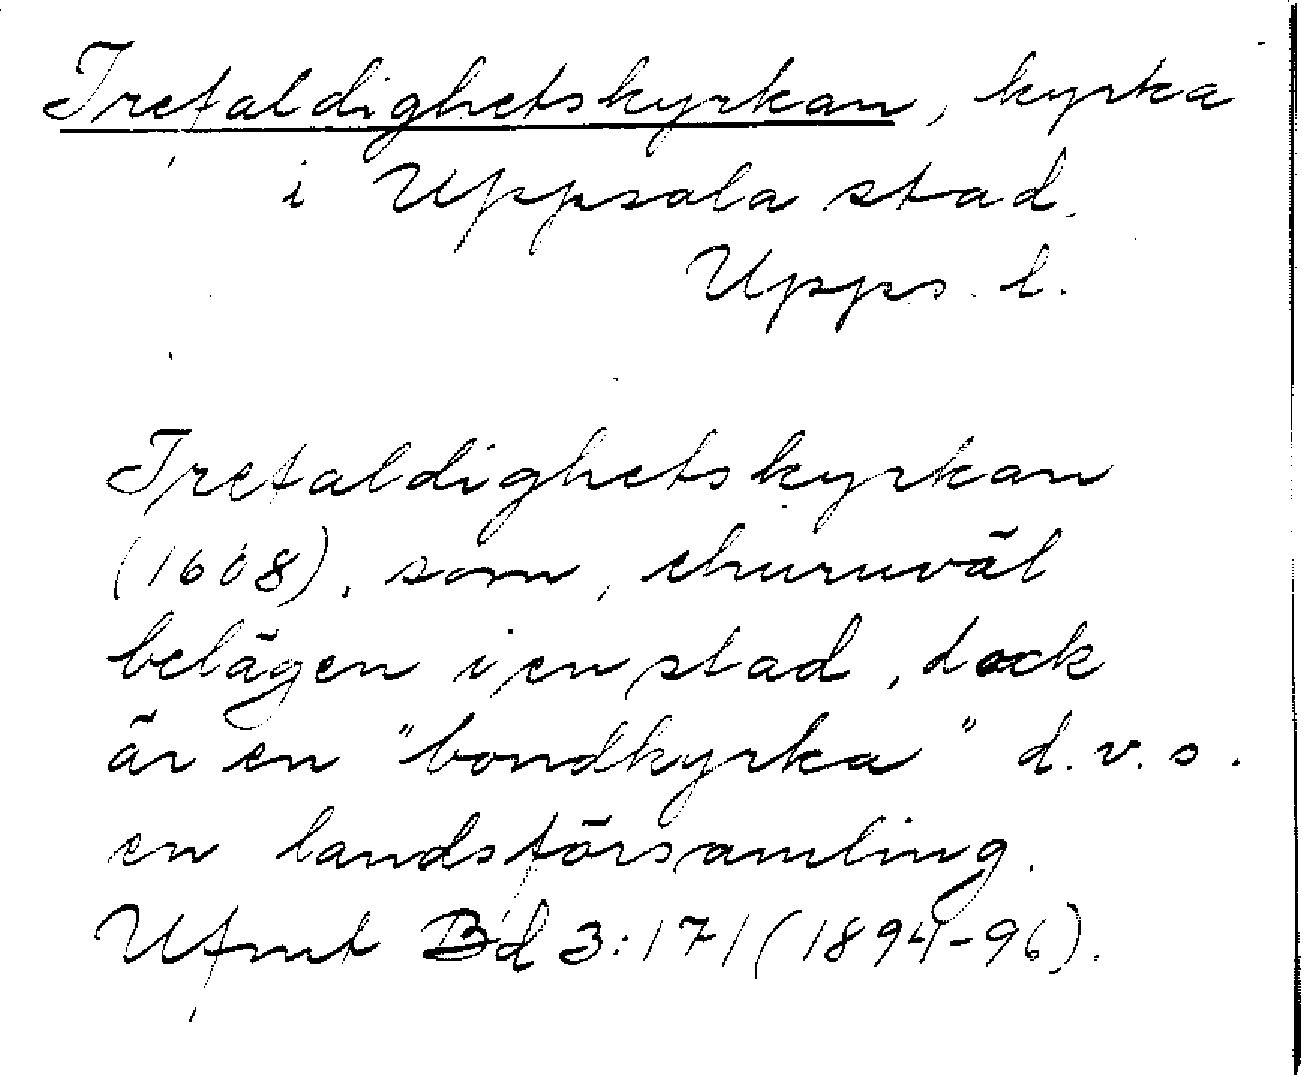 Trefaldighetskyrkan, kyrka
i Uppsala stad.
Upps. l.
Trefaldighetskyrkan
(1608), som, ehuruväl
belägen i en stad, dock
är en "bondkyrka" d.v.s.
en landsförsamling.
Ufmt Bd 3:171 (1894-96).